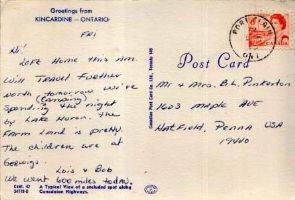 Greetings from
KINCARDINE — ONTARIO
FRI
Hi!
Left Home this AM.
Will Travel Further
North tomorrow We're
(camping)
Spending the night
by Lake Huron. The
Farm Land is pretty.
The children are at
Gerwigs.
Lois & Bob
We went 400 miles today.
A Typical View of a secluded spot along
Canadian Highways.
Canadian Post Card Co. Ltd., Toronto
PORT ELGIN
ONT
CANADA
Post Card
Mr & Mrs. B.L. Pinkerton
1603 Maple Ave
Hatfield, Penna USA
19440